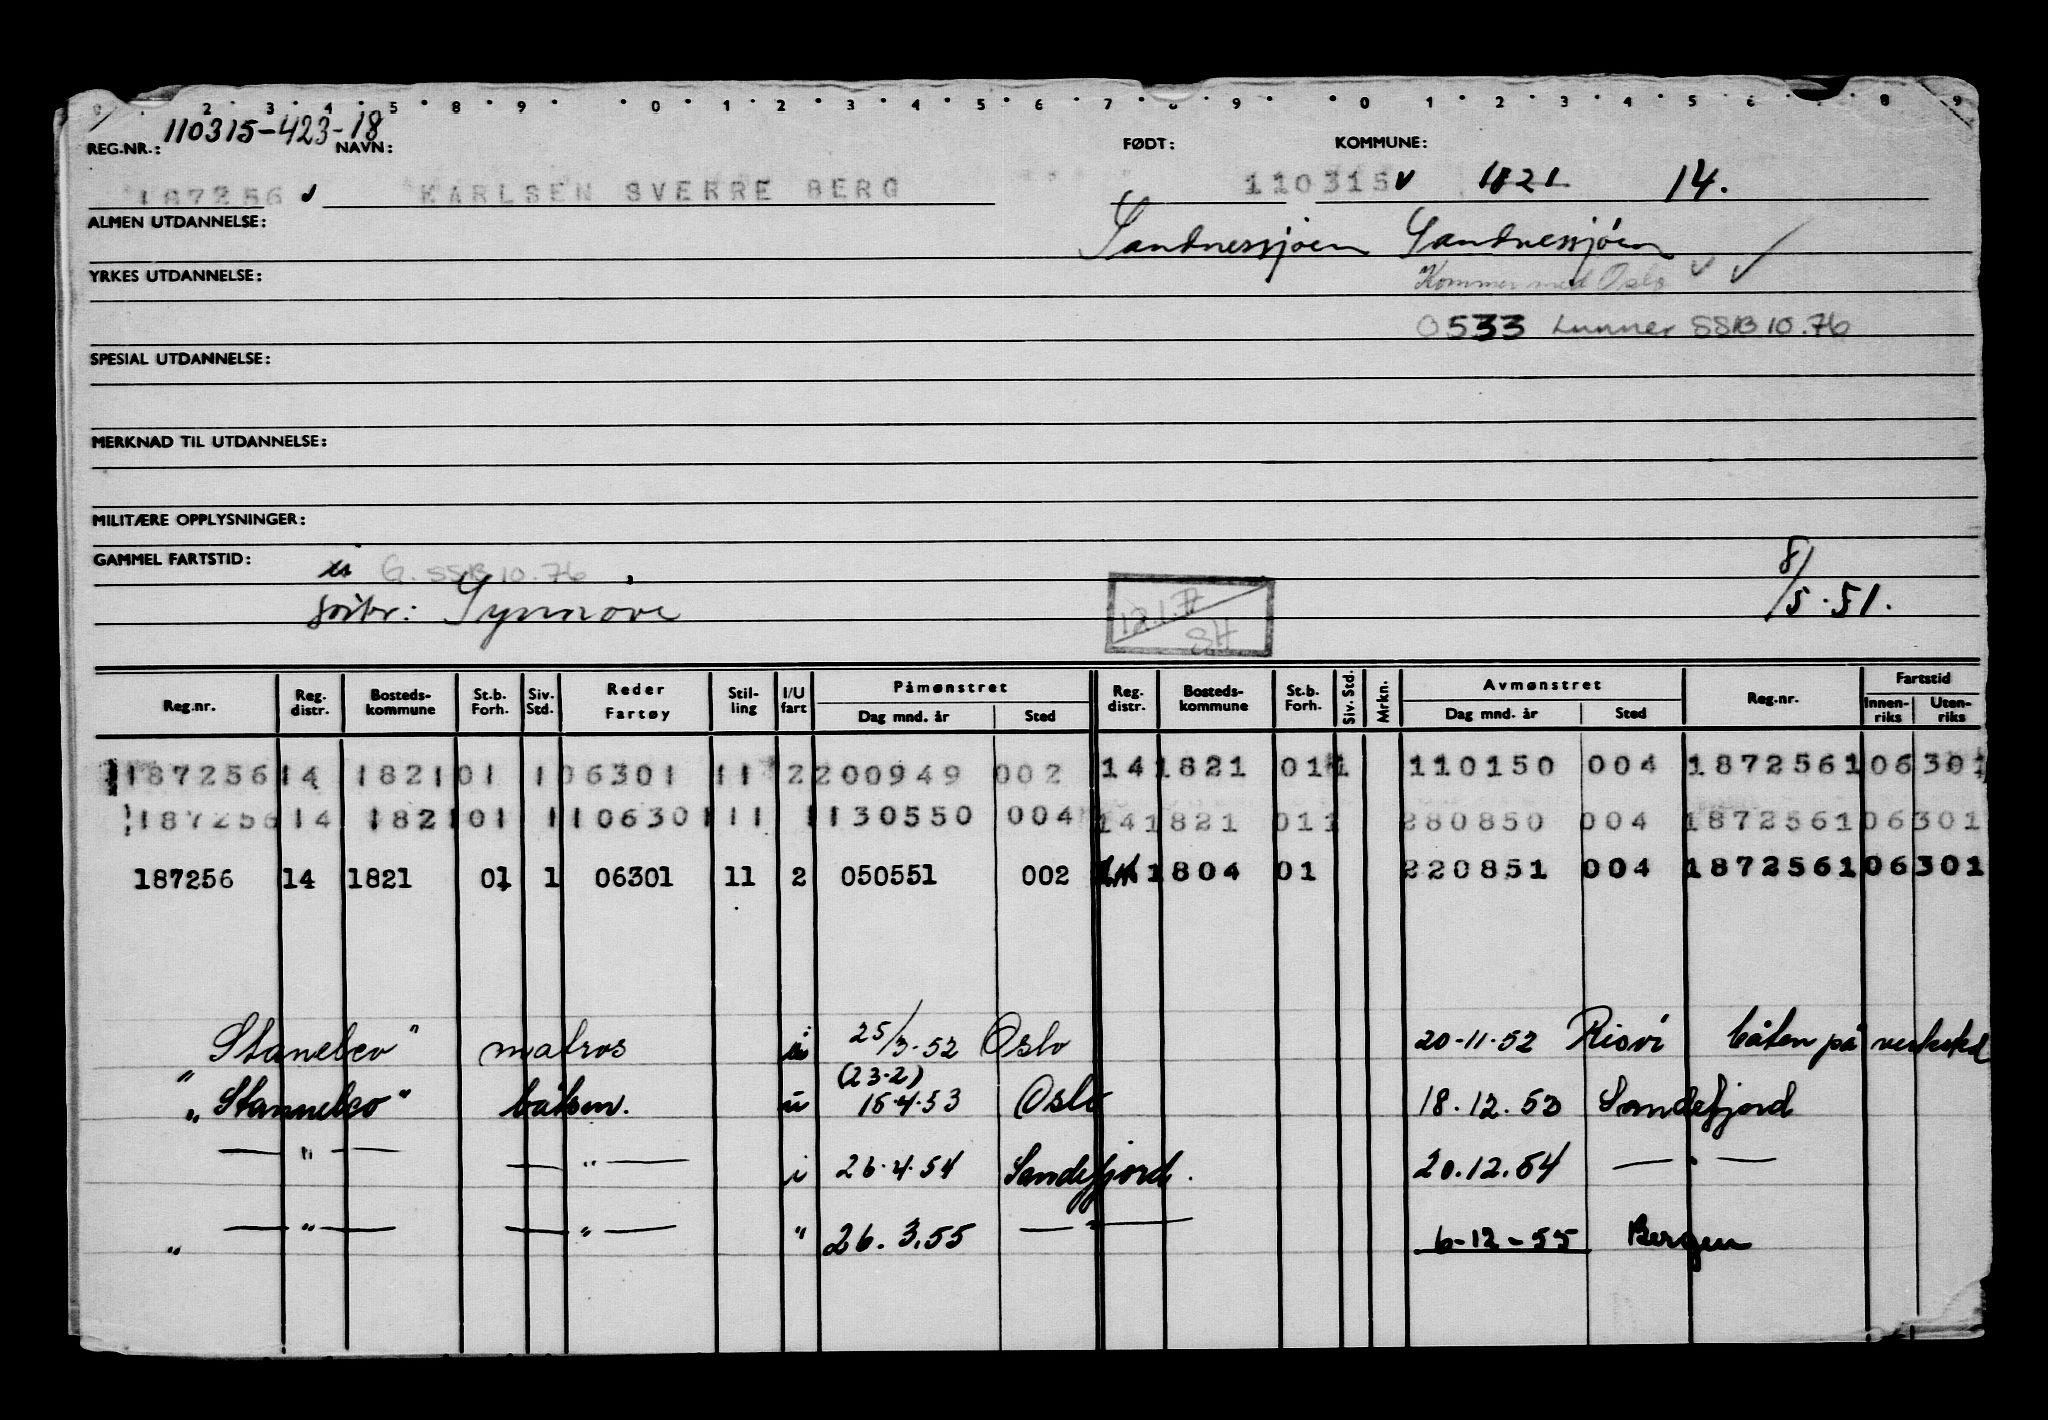 2 3 4 5 8 9 0 1 2 3 4 5 6 7 8 9 0 1 2 3 4 5 6 7 8 9
110315-423-18
REG.NR.: NAVN: FØDT: KOMMUNE:
187256 KARLSEN SVERRE BERG 110315 1821 14.
ALMEN UTDANNELSE: Sandnessjøen Sandnessjøen
YRKES UTDANNELSE: Kommer med Oslo
0533 Lunner SSB 10.76
SPESIAL UTDANNELSE:
MERKNAD TIL UTDANNELSE:
MILITÆRE OPPLYSNINGER:
GAMMEL FARTSTID: G. SSB 10.76 8/5.51.
Synnøve
Reg.nr. Reg. distr. Bosteds-kommune St.b. Forh. Siv. Std. Reder Fartøy Stil-ling I/U fart Påmønstret Dag mnd. år Sted Reg. distr. Bosteds-kommune St.b. Forh. Siv. Std. Mrkn. Avmønstret Dag mnd. år Sted Reg.nr. Fartstid Innen-riks Uten-riks
187256 14 1821 01 1 06301 11 2 200949 002 14 1821 01 1 110150 004 187256 1 06 301
187256 14 1821 01 1 10630 1 11 1 130550 004 14 1821 01 1 280850 004 187256 1 06 301
187256 14 1821 01 1 06301 11 2 050551 002 1804 01 220851 004 187256 1 06 301
"Stanelco" matros 25/3-52 Oslo 20-11-52 Risør båten på verksted
(23-2)
"Stannelco" båtsm. u 16-4-53 Oslo 18.12.53 Sandefjord
— " — — " — i 26.4.54 Sandefjord. 20.12.54 — " —
— " — — " — " 26.3.55 — " — 6-12-55 Bergen
"